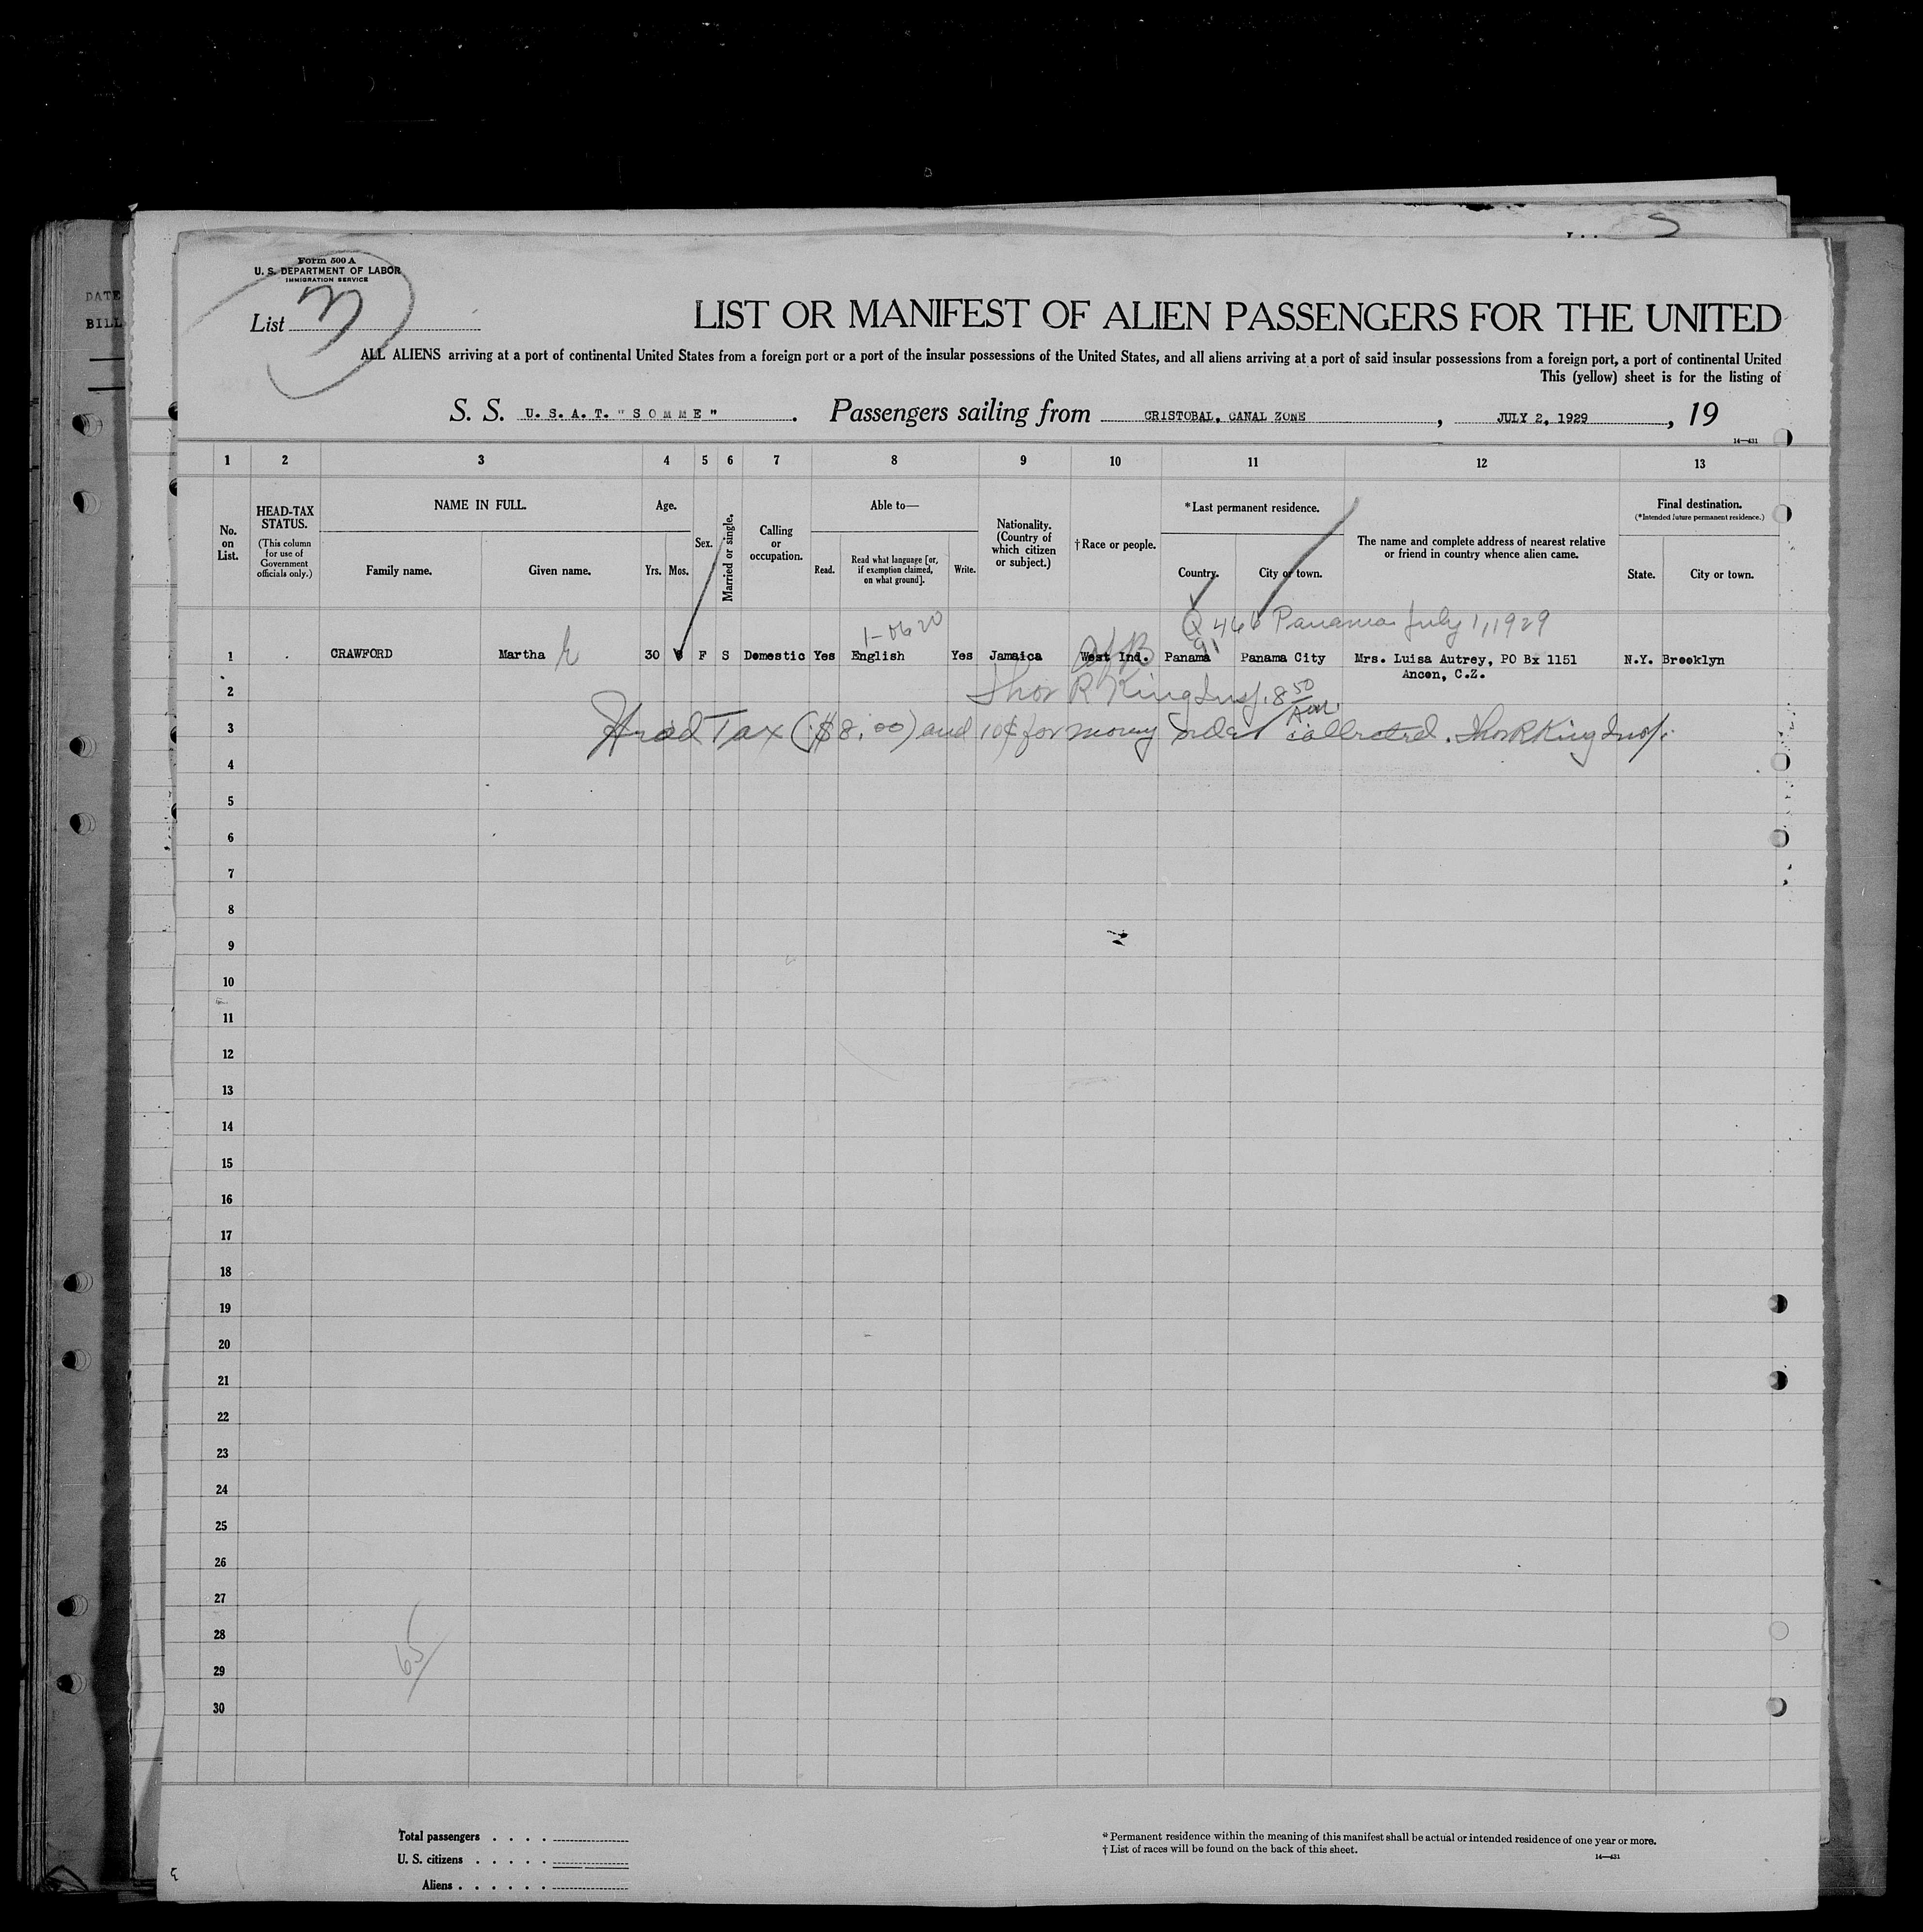 DATE
BILL
Form 500 A
U. S. DEPARTMENT OF LABOR
IMMIGRATION SERVICE
List 3
LIST OR MANIFEST OF ALIEN PASSENGERS FOR THE UNITED
ALL ALIENS arriving at a port of continental United States from a foreign port or a port of the insular possessions of the United States, and all aliens arriving at a port of said insular possessions from a foreign port, a port of continental United
This (yellow) sheet is for the listing of
S. S. U. S. A. T. "SOMME". Passengers sailing from CRISTOBAL, CANAL ZONE, JULY 2, 1929, 19
14—431
1 2 3 4 5 6 7 8 9 10 11 12 13
No. on List.
HEAD-TAX STATUS.
(This column for use of Government officials only.)
NAME IN FULL.
Family name. Given name.
Age.
Yrs. Mos.
Sex.
Married or single.
Calling or occupation.
Able to—
Read. Read what language [or, if exemption claimed, on what ground]. Write.
Nationality. (Country of which citizen or subject.)
†Race or people.
*Last permanent residence.
Country. City or town.
The name and complete address of nearest relative or friend in country whence alien came.
Final destination.
(*Intended future permanent residence.)
State. City or town.
Panama July 1, 1929
1 CRAWFORD Martha 30 F S Domestic Yes English Yes Jamaica West Ind. Panama Panama City Mrs. Luisa Autrey, PO Bx 1151 N.Y. Brooklyn
Ancon, C.Z.
2 Thor R King Insp. 8 50
3 Head Tax ($8.00) and 10¢ for money order collected. Thor R King Insp.
4
5
6
7
8
9
10
11
12
13
14
15
16
17
18
19
20
21
22
23
24
25
26
27
28
29
30
65
Total passengers . . . .
U. S. citizens . . . . .
Aliens . . . . . .
*Permanent residence within the meaning of this manifest shall be actual or intended residence of one year or more.
† List of races will be found on the back of this sheet.
14—431